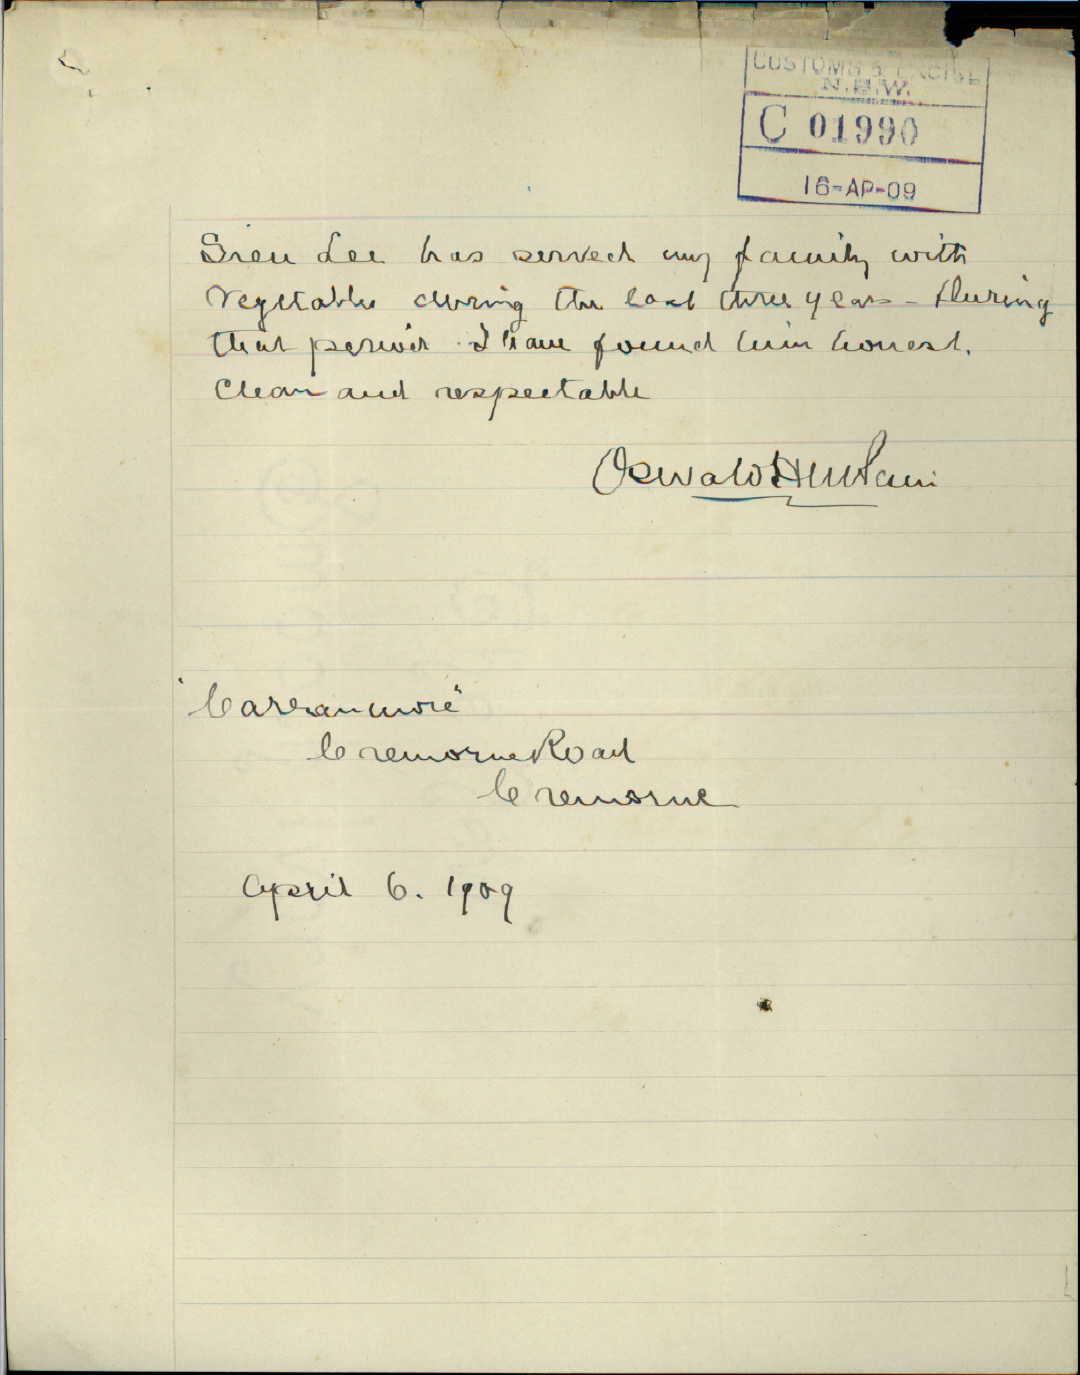 CUSTOMS & EXCISE
N.S.W.
C 01990
16-AP-09
Sien Lee has served my family with
Vegetables during the last three years - During
that period I have found him honest,
Clean and respectable
Oswald
"Carranmore"
Cremorne Road
Cremorne
April 6. 1909